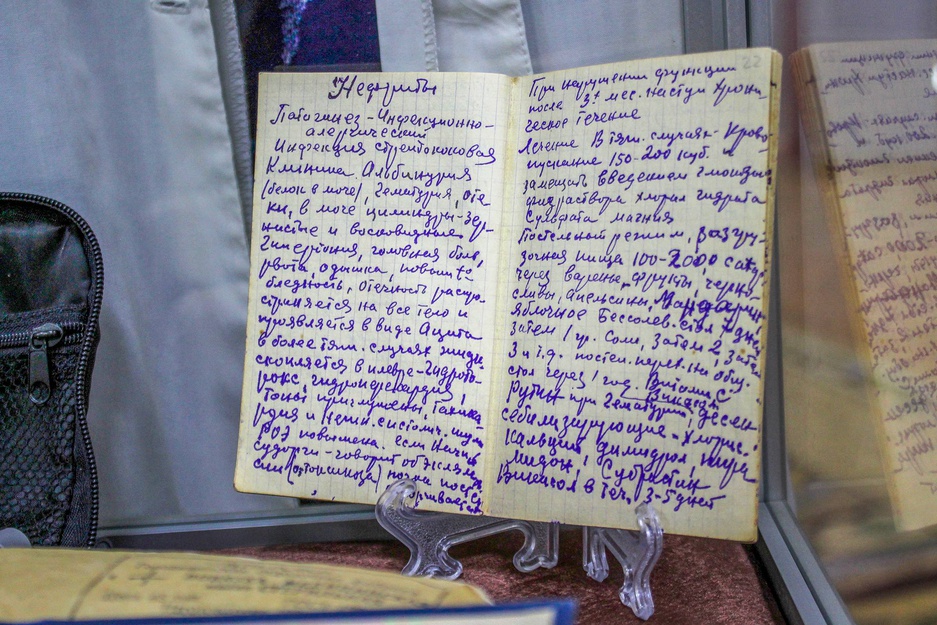 Нефриты
Патогинез - Инфекционно-
алергический
Инфекция стрептококовая
Клиника Альбинурия
(белок в моче), Гематурия, оте-
ки, в моче цилиндры - зер-
нистые и восковидные.
Гипертония, головная боль,
рвота, одышка, повыш t°
бледность, отечность распро-
страняется на все тело и
проявляется в виде Ацита
в более тяж. случаях жидк.
скопляется в плевре - гидрото-
ракс, гидроперкардия,
Тоны приглушены, Тахика
рдия и систолич. шум
РОЭ повышена. если начин
судороги - говорит об эклям
сии почка
22
При нарушении функции
после 3х мес. наступ Хрони-
ческое течение
Лечение В тяж. случаях - Крово-
пускание 150-200 куб. и
замещать введением глюкозы
физраствора Хлорал гидрата
Сульфата магния
Постельный режим, разгру-
зочная пища 100-200,0 сахар
через варенье, фрукты, черно-
сливы, апельсины, Мандарин,
яблочное Бессолев. стол 7 дней
затем 1 гр. Соли, затем 2, затем
3 и т.д. постел. перев. на общ.
стол через 1 год. Витамин. С.
Рутин при Гематурии, Викасол, десен-
себилизирующие - Хлорис.
Кальций, димидрол, пира
мидон, Супрастин
в теч. 3-5 дней